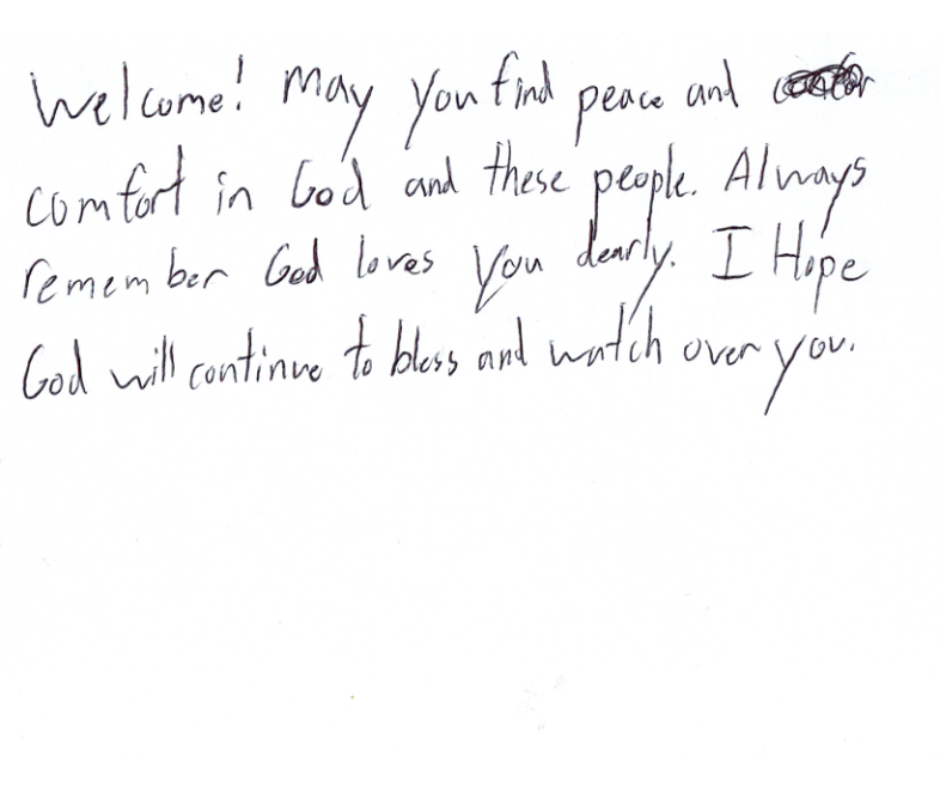 Welcome! May you find peace and
comfort in God and these people. Always
remember God loves you dearly. I Hope
God will continue to bless and watch over you.